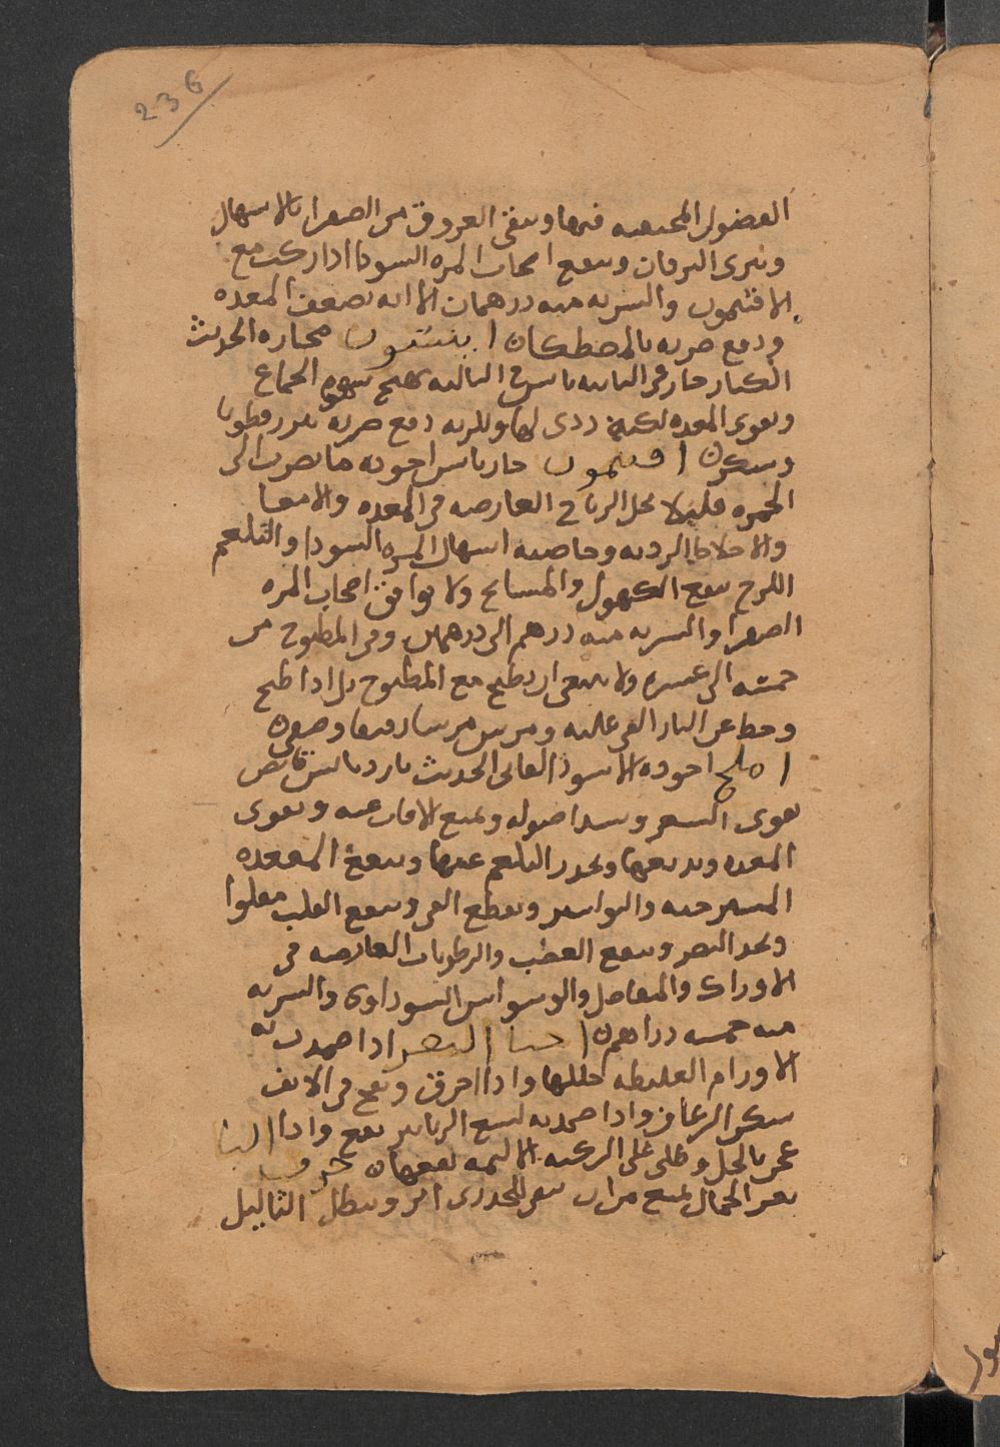 236
الفضول المجتمعه فيها وينقى العروق من الصفرا بالاسهال
ويبرى اليرقان وينفع اصحاب المره السودا اذا ركب مع
الافتيمون والشربه منه درهمان الا انه يضعف المعده
ودفع ضرره بالمصطكا
الكبار حار فى الثانيه يابس فى الثالثه يهيج شهوه الجماع
ويقوى المعده لكنه ردى لها وللريه دفع ضرره بزر قطونا
وسكر افتيمون حار يابس اجوده ما يضرب الى
الحمره قليلا يحل الرياح العارضه فى المعده والامعا
والاخلاط الرديه وخاصيه اسهال المره السودا والبلغم
اللزج ينفع الكهول والمشايخ ولا يوافق اصحاب المره
الصفرا والشربه منه درهم الى درهمين وفى المطبوخ من
خمسه الى عشره ولا ينبغى ان يطبخ مع المطبوخ بل اذا طبخ
وحط عن النار القى عليه ومرس مرسا رفيقا وصفى
املج اجوده الاسود الحديث بارد يابس قابض
يقوى الشعر ويسد اصوله ويمنع الافات عنه ويقوى
المعده ويدبغها ويحدر البلغم عنها وينفع المعده
المسترخيه والبواسير ويقطع القى وينفع القلب مقلوا
ويحد البصر وينفع العصب والرطوبات العارضه فى
الاوراك والمفاصل والوسواس السوداوى والشربه
منه خمسه دراهم اخثا البقر اذا ضمدت به
الاورام الغليظه حللها واذا احرق ونفخ فى الانف
سكن الرعاف واذا ضمد به لسع الزنابير نفع واذا
عجن بالخل وطلى على الركبه الاليمه نفعها
بعر الجمال يمنع من ان يبقى للجدرى اثر ويبطل الثاليل